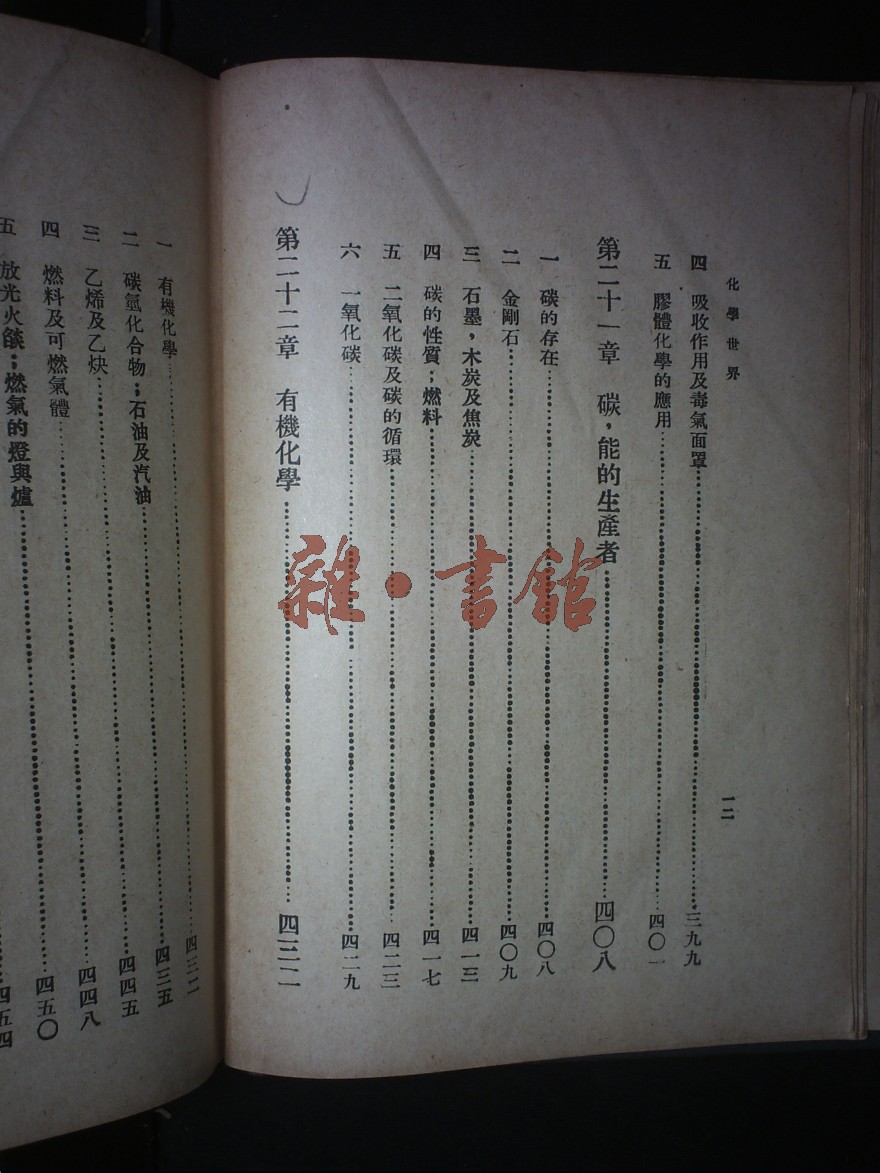 化學世界
一二
四 吸收作用及毒氣面罩……三九九
五 膠體化學的應用……四〇一
第二十一章 碳，能的生產者……四〇八
一 碳的存在……四〇八
二 金剛石……四〇九
三 石墨，木炭及焦炭……四一三
四 碳的性質；燃料……四一七
五 二氧化碳及碳的循環……四二三
六 一氧化碳……四二九
第二十二章 有機化學……四三二
一 有機化學……四三二
二 碳氫化合物；石油及汽油……四三五
三 乙烯及乙炔……四四五
四 燃料及可燃氣體……四四八
五 放光火燄；燃氣的燈與爐……四五〇
四五四
雜·書館